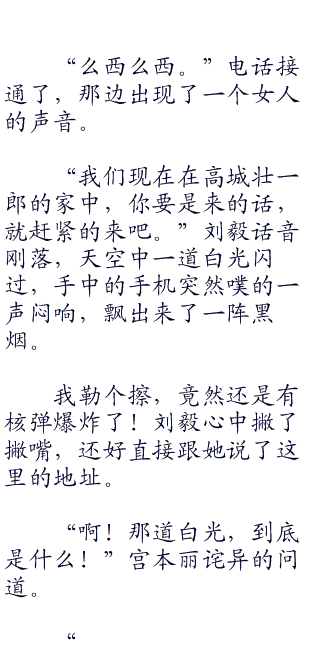 “么西么西。”电话接
通了，那边出现了一个女人
的声音。
“我们现在在高城壮一
郎的家中，你要是来的话，
就赶紧的来吧。”刘毅话音
刚落，天空中一道白光闪
过，手中的手机突然噗的一
声闷响，飘出来了一阵黑
烟。
我勒个擦，竟然还是有
核弹爆炸了！刘毅心中撇了
撇嘴，还好直接跟她说了这
里的地址。
“啊！那道白光，到底
是什么！”宫本丽诧异的问
道。
“